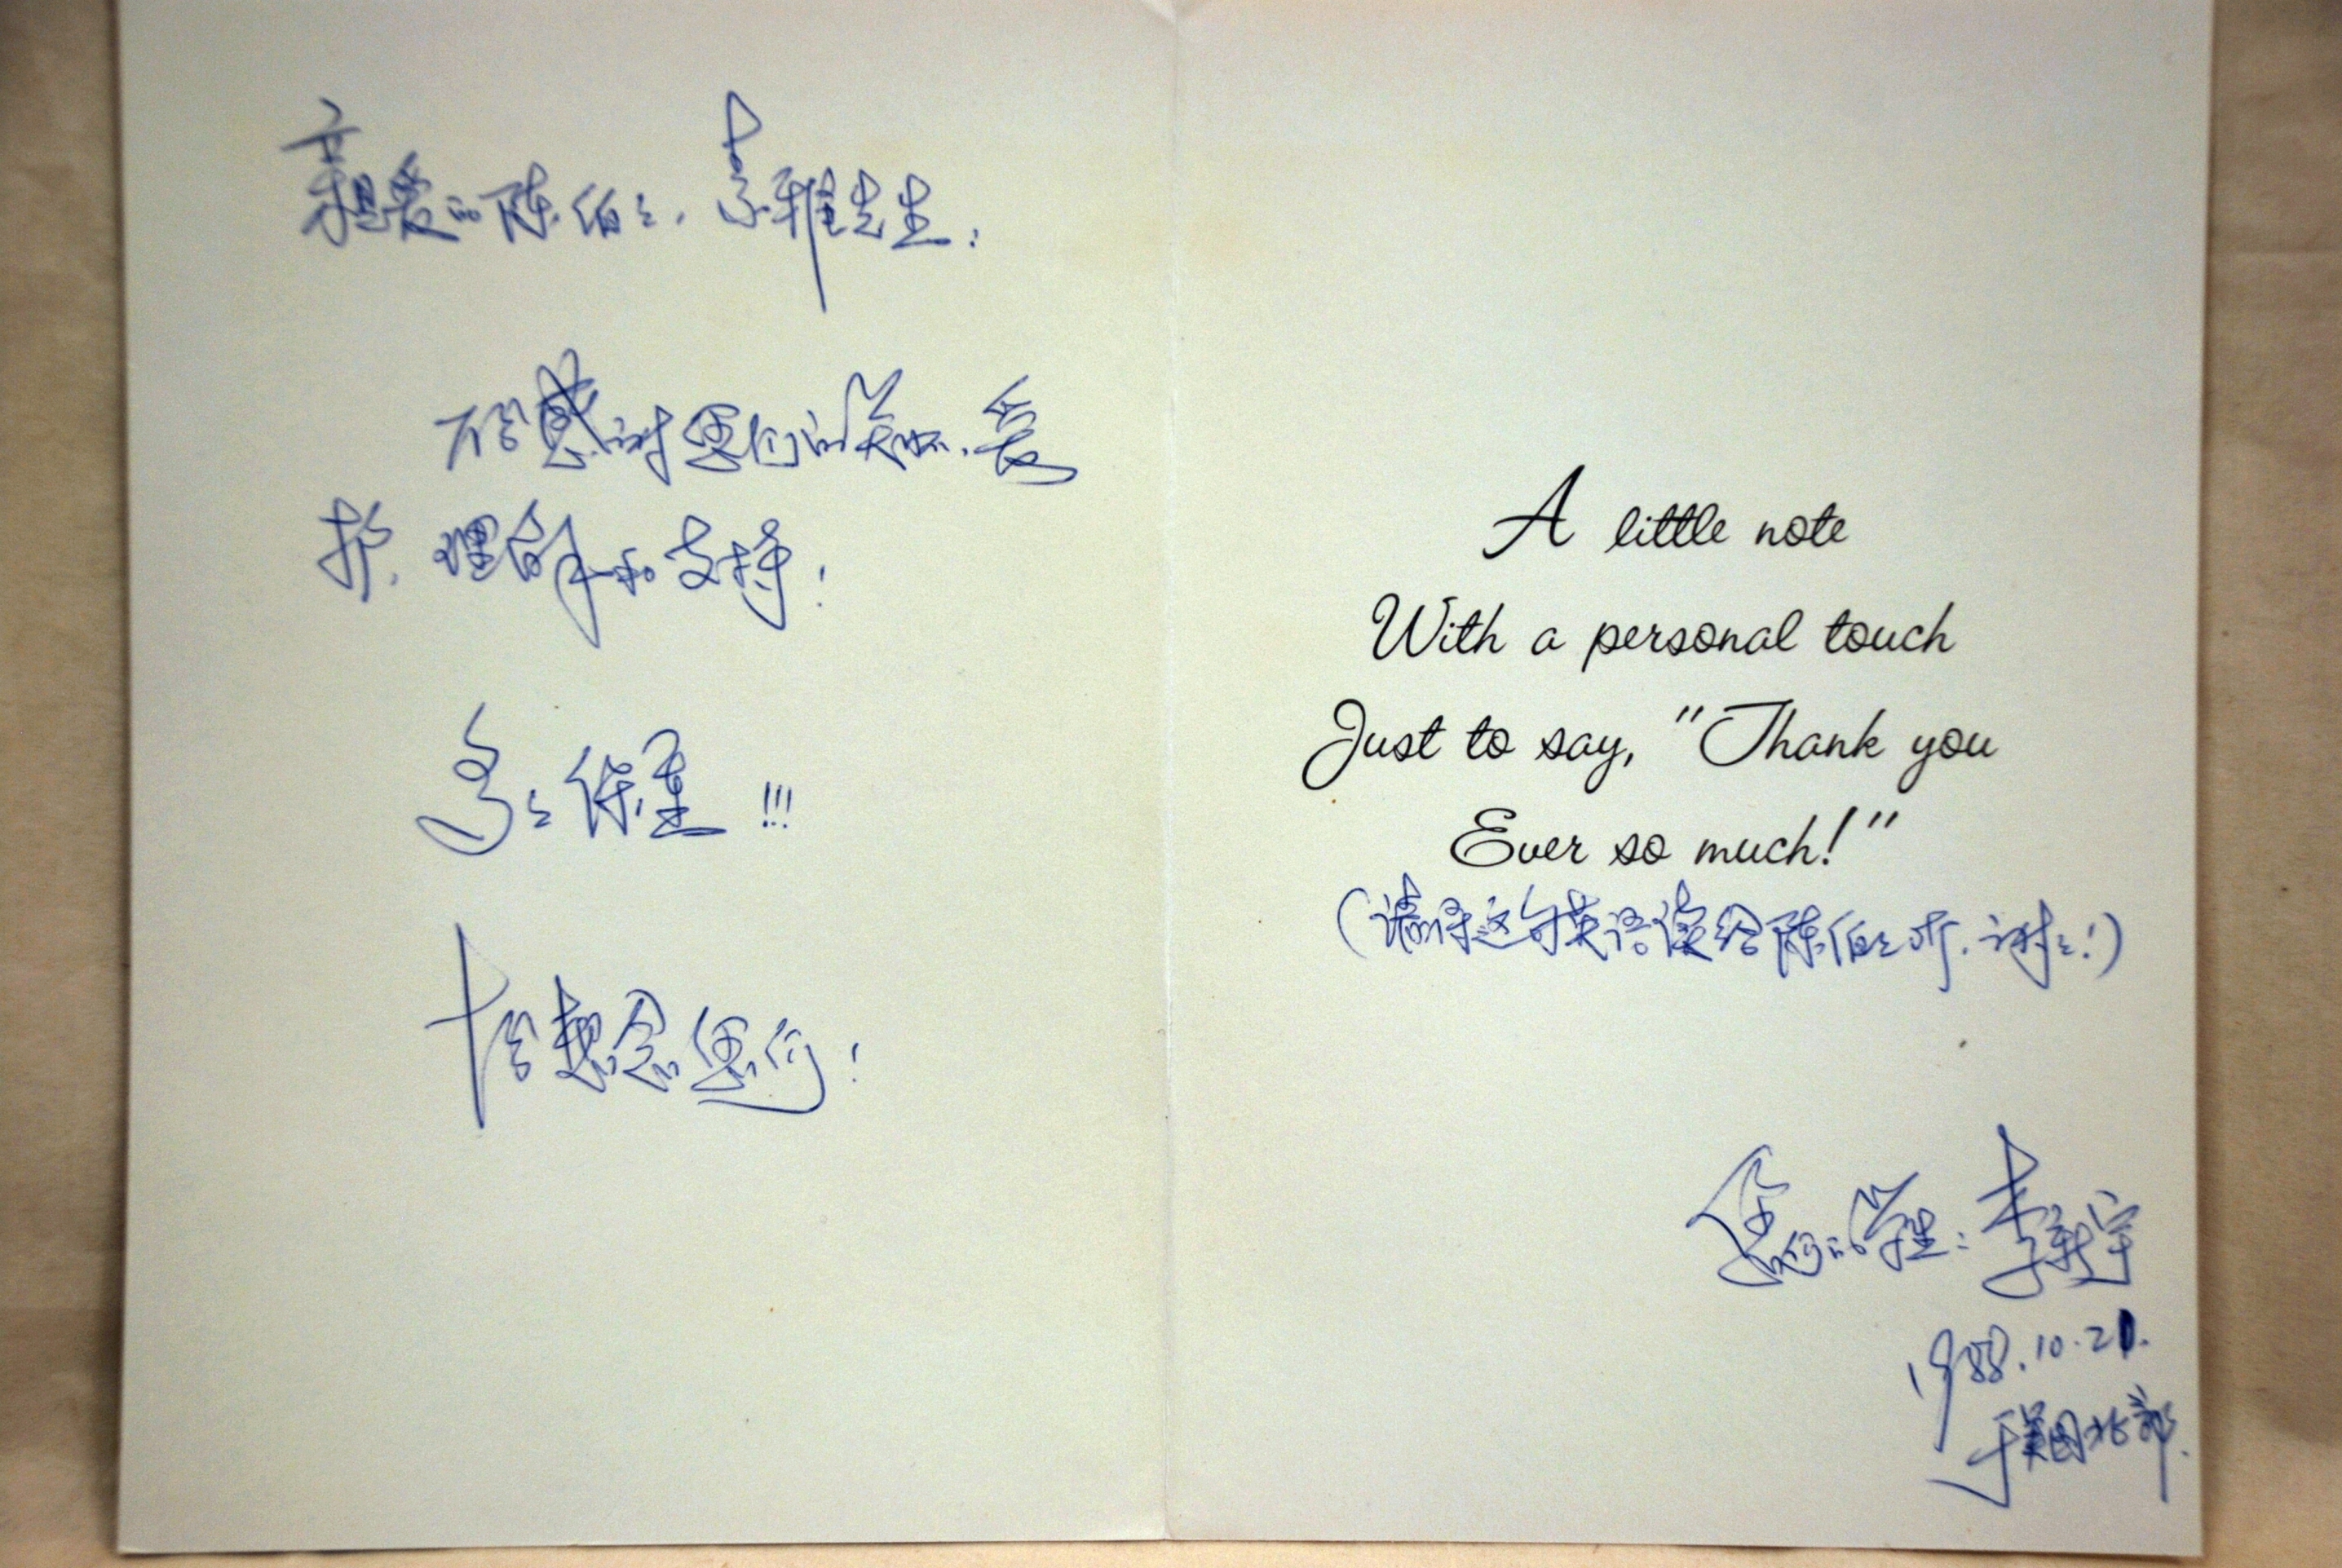 亲爱的陈伯々、素雅先生：
万分感谢您们的关怀、爱
护、理解和支持！
多々保重!!!
十分想念您们！
A little note
With a personal touch
Just to say, "Thank you
Ever so much!"
(请将这句英语读给陈伯々听，谢々！)
您们的学生：李新宇
1988.10.21.
于美国北部.